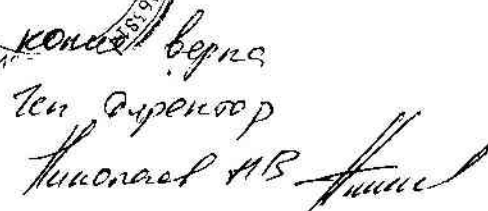 копия верна
Ген директор
Николаев НВ